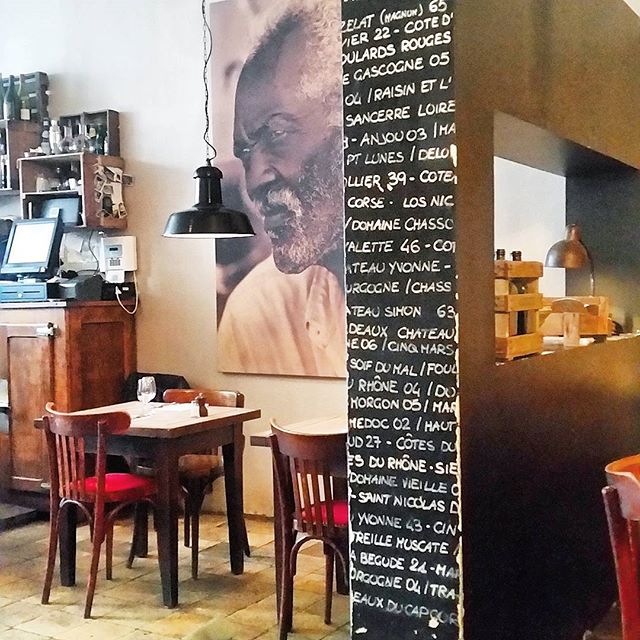 ZELAT (MAGNUM) 65
VIER 22 - COTE D'
OULARDS ROUGES
E GASCOGNE 05
04 / RAISIN ET L'
SANCERRE LOIRE
- ANJOU 03 / MA
PT LUNES / DELO
OLLIER 39 - COTE
CORSE - LOS NIC
/ DOMAINE CHASSO
ALETTE 46 - COT
ATEAU YVONNE -
URGOGNE / CHASS
TEAU SIMON 63
DEAUX CHATEAU
NE 06 / CINQ MARS
SOIF DU MAL / FOUL
U RHÔNE 04 / DO
MORGON 05 / MAR
MEDOC 02 / HAUT
UD 27 - CÔTES DU
ES DU RHÔNE - SIE
DOMAINE VIEILLE
- SAINT NICOLAS D
YVONNE 43 - CIN
TREILLE MUSCATE /
A BEGUDE 21 - MAR
ORGOGNE 04 / TRA
EAUX DU CAP COR